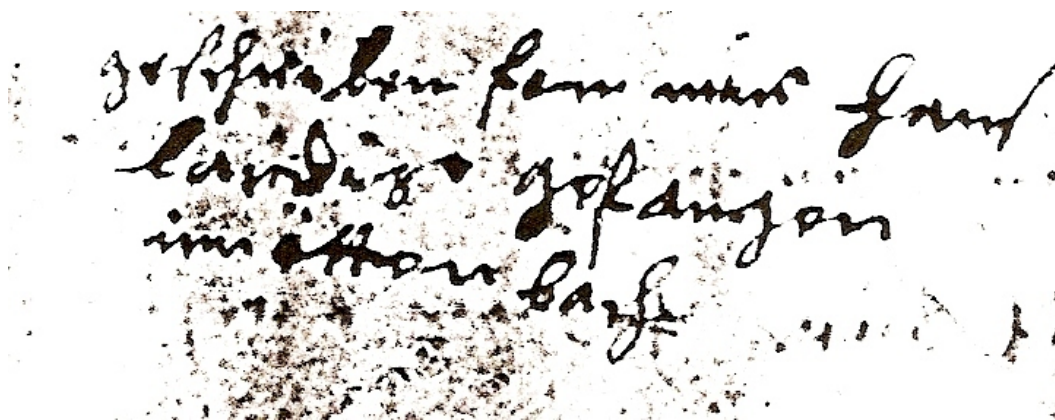 geschrieben fon mir Hans
landis gefangen
im ottenbach